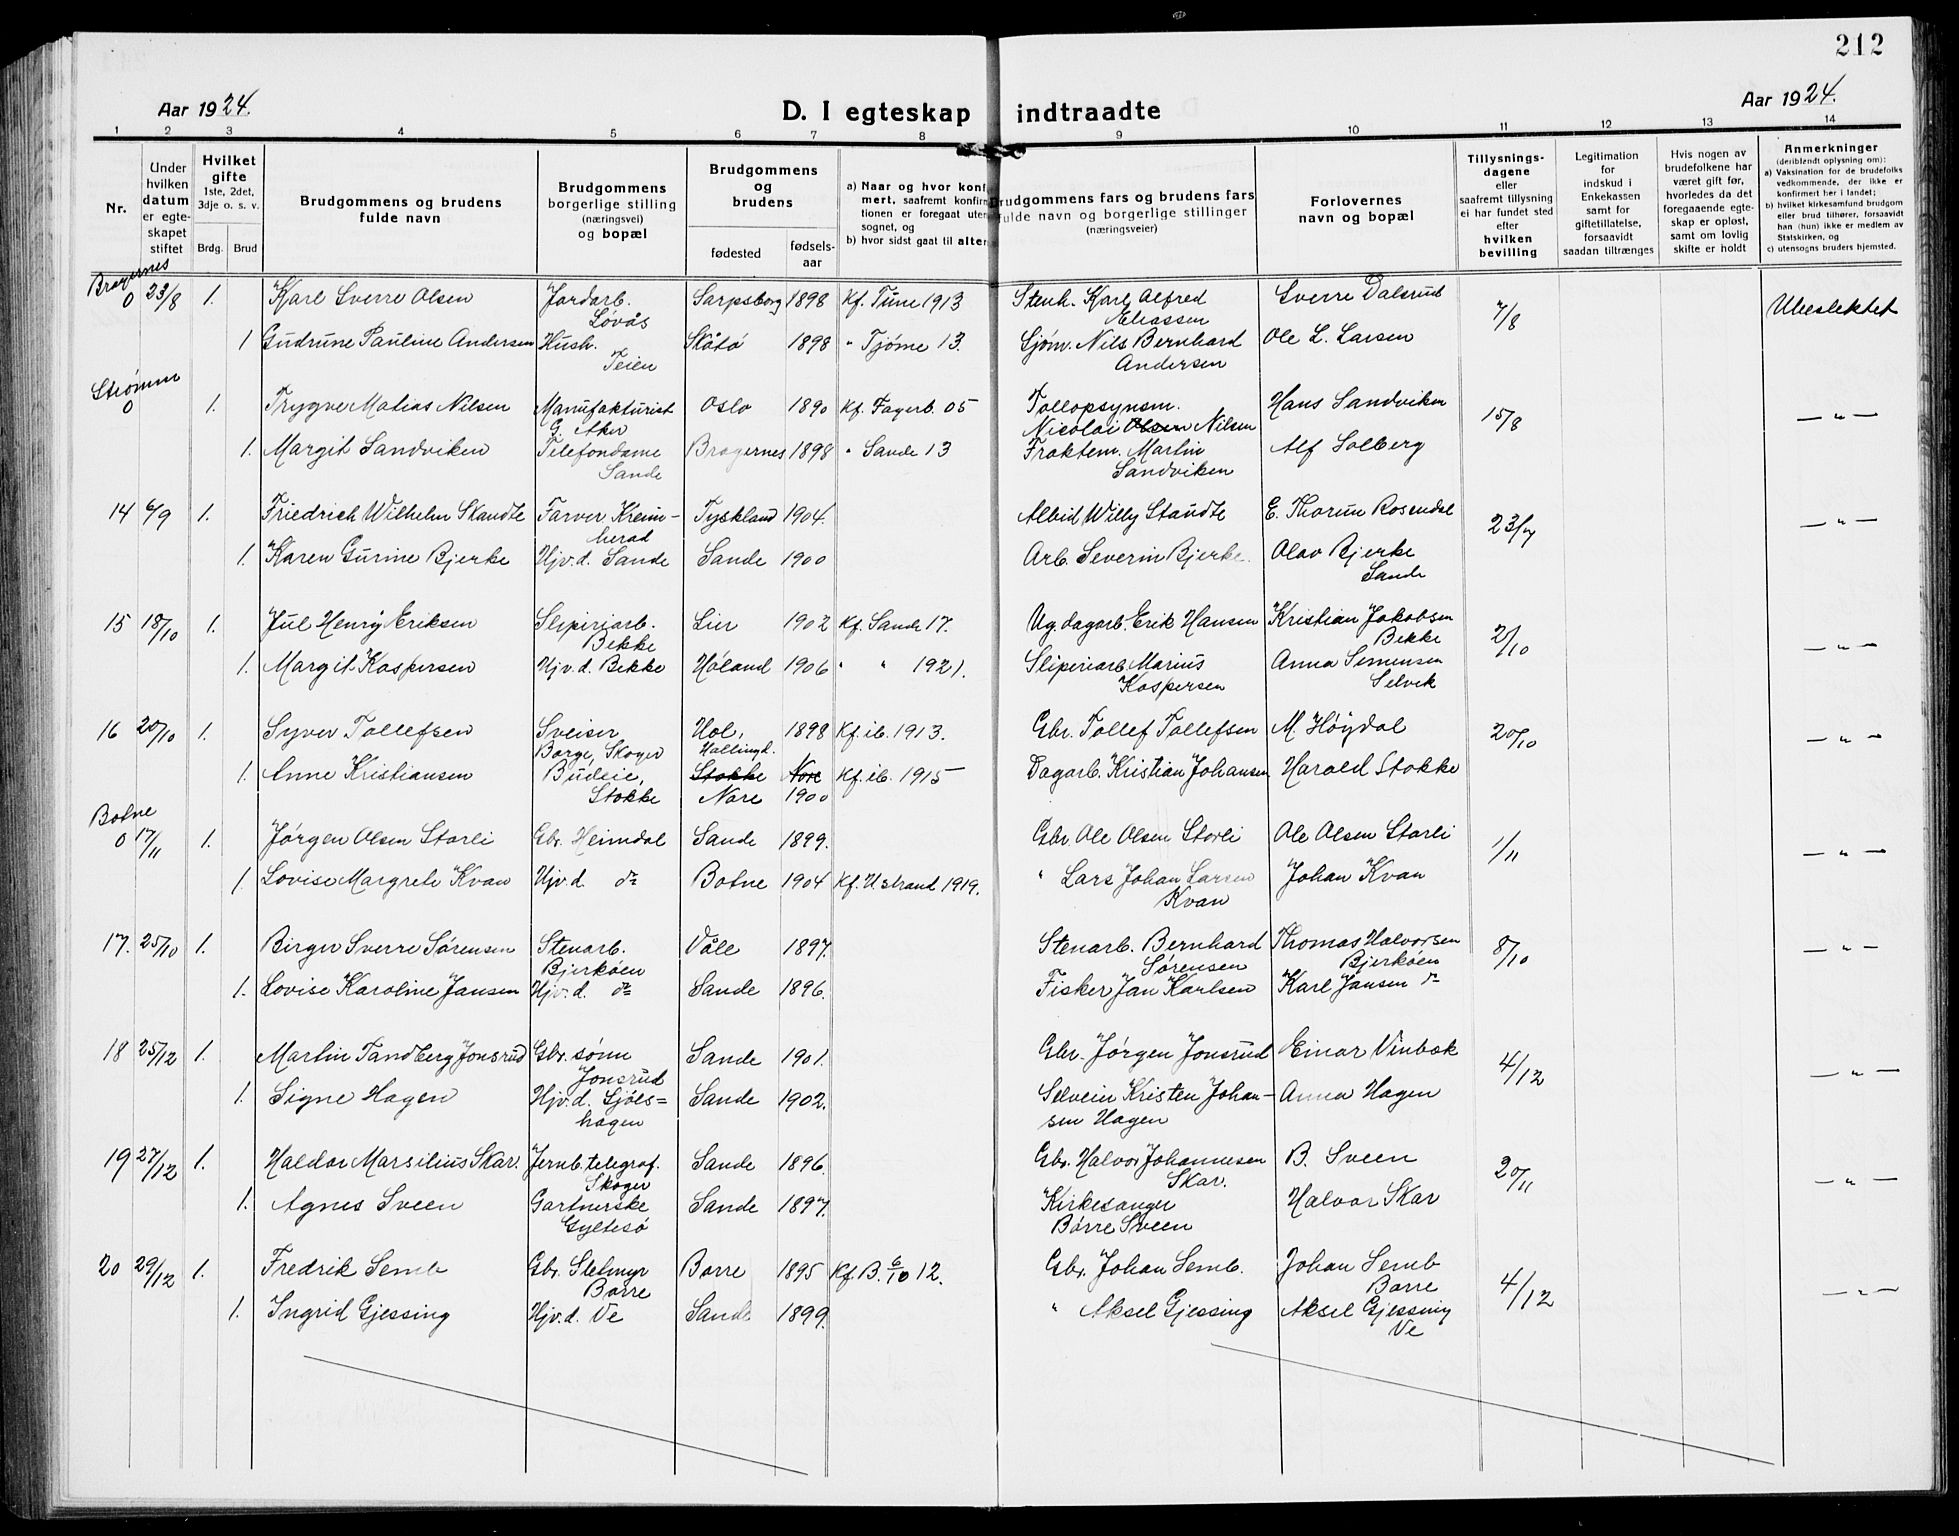 212
Aar 1924.
D. I egteskap indtraadte
Aar 1924.
1 2 3 4 5 6 7 8 9 10 11 12 13 14
Nr.
Under hvilken datum er egteskapet stiftet
Hvilket gifte
1ste, 2det, 3dje o. s. v.
Brdg. Brud
Brudgommens og brudens fulde navn
Brudgommens borgerlige stilling (næringsvei) og bopæl
Brudgommens og brudens
fødested
fødselsaar
a) Naar og hvor konf
mert, saafremt konfirm
tionen er foregaat uten
sognet, og
b) hvor sidst gaat til alter
Brudgommens fars og brudens fars
fulde navn og borgerlige stillinger
(næringsveier)
Forlovernes navn og bopæl
Tillysningsdagene eller saafremt tillysning ei har fundet sted efter hvilken bevilling
Legitimation for indskud i Enkekassen samt for giftetillatelse, forsaavidt saadan tiltrænges
Hvis nogen av brudefolkene har været gift før, hvorledes da det foregaaende egteskap er opløst, samt om lovlig skifte er holdt
Anmerkninger
(deriblendt oplysning om):
a) Vaksination for de brudefolks vedkommende, der ikke er konfirmert her i landet;
b) hvilket kirkesamfund brudgom eller brud tilhører, forsaavidt han (hun) ikke er medlem av Statskirken, og
c) utensogns bruders hjemsted.
Bragernes
0 23/8 1. Karl Sverre Olsen Jordarb. Sarpsborg 1898 Kf. Tune 1913 Stenh. Karl Alfred Sverre Dalsrud 7/8 Ubeslektet
Løvås Eliassen
1 Gudrune Pauline Andersen Hush. Skåtø 1898 " Tjøme 13. Sjøm. Nils Bernhard Ole L. Larsen
Teien Andersen
Strømm
0 1. Trygve Matias Nilsen Manufakturist Oslo 1890 Kf. Fagerb. 05 Tollopsynsm. Hans Sandviken 15/8 — " —
G. Aker Nicolai Olsen Nilsen
1. Margit Sandviken Telefondame Bragernes 1898 " Sande 13 Fraktem. Martin Alf Solberg
Sande Sandviken
14 6/9 1. Friedrich Wilhelm Skaudte Farver Krem- Tyskland 1904. Albid Willy Staudte E. Thorun Rosendal 23/7 — " —
herad
1. Karen Gurine Bjerke Hjv. d. Sande Sande 1900 Arb. Severin Bjerke. Olav Bjerke
Sande
15 18/10 1. Jul Henry Eriksen Sliperiarb. Lier 1902 Kf. Sande 17. Ug dagarb. Erik Hansen Kristian Jakobsen 2/10 — " —
Bekke Bekke
1. Margit Kaspersen Hjv. d. Bekke Høland 1906 " " 1921. Sliperiarb. Marius Anna Simensen
Kaspersen Selvik
16 20/10 1. Syver Tollefsen Sveiser Hol, 1898 Kf. ib. 1913. Gbr. Tollef Tollefsen M. Høydal 20/10 — " —
Borge, Skoger Hallingd.
1. Anne Kristiansen Budeie, Stokke Nore Kf. ib. 1915 Dagarb. Kristian Johansen Harald Stokke
Stokke Nore 1900
Botne
0 17/11 1. Jørgen Olsen Storli Gbr. Heimdal Sande 1899. Gbr Ole Olsen Storli Ole Olsen Storli 1/11 — " —
1. Lovise Margrete Kvan Hjv. d. do Botne 1904 Kf. Ustrand 1919. " Lars Johan Larsen Johan Kvan
Kvan
17. 25/10 1. Birger Sverre Sørensen Stenarb. Våle 1897. Stenarb. Bernhard Thomas Halvorsen 8/10 — " —
Bjerkøen Sørensen Bjerkøen
1. Lovise Karoline Jansen Hjv. d. do Sande 1896. Fisker Jan Karlsen Karl Jansen do
18 25/12 1. Martin Tandberg Jonsrud Gbr. sønn Sande 1901. Gbr. Jørgen Jonsrud Einar Vinbæk 4/12 — " —
Jonsrud
1. Signe Hagen Hjv. d. Gjøls= Sande 1902. Selvein Kristen Johan- Anna Hagen
hagen sen Hagen
19 27/12 1. Haldor Marsilius Skar. Jernb. telegraf. Sande 1896. Gbr. Halvor Johannesen B. Sveen 20/11 — " —
Skoger Skar.
1. Agnes Sveen Gartnerske Sande 1897. Kirkesanger Halvor Skar
Gyltesø Børre Sveen
20 29/12 1. Fredrik Semb Gbr. Sletmyr Borre 1895 Kf. B. 6/10 12. Gbr. Johan Semb. Johan Semb 4/12 — " —
Borre Borre
1. Ingrid Gjessing Hjv. d. Ve Sande 1899. " Aksel Gjessing Aksel Gjessing
Ve